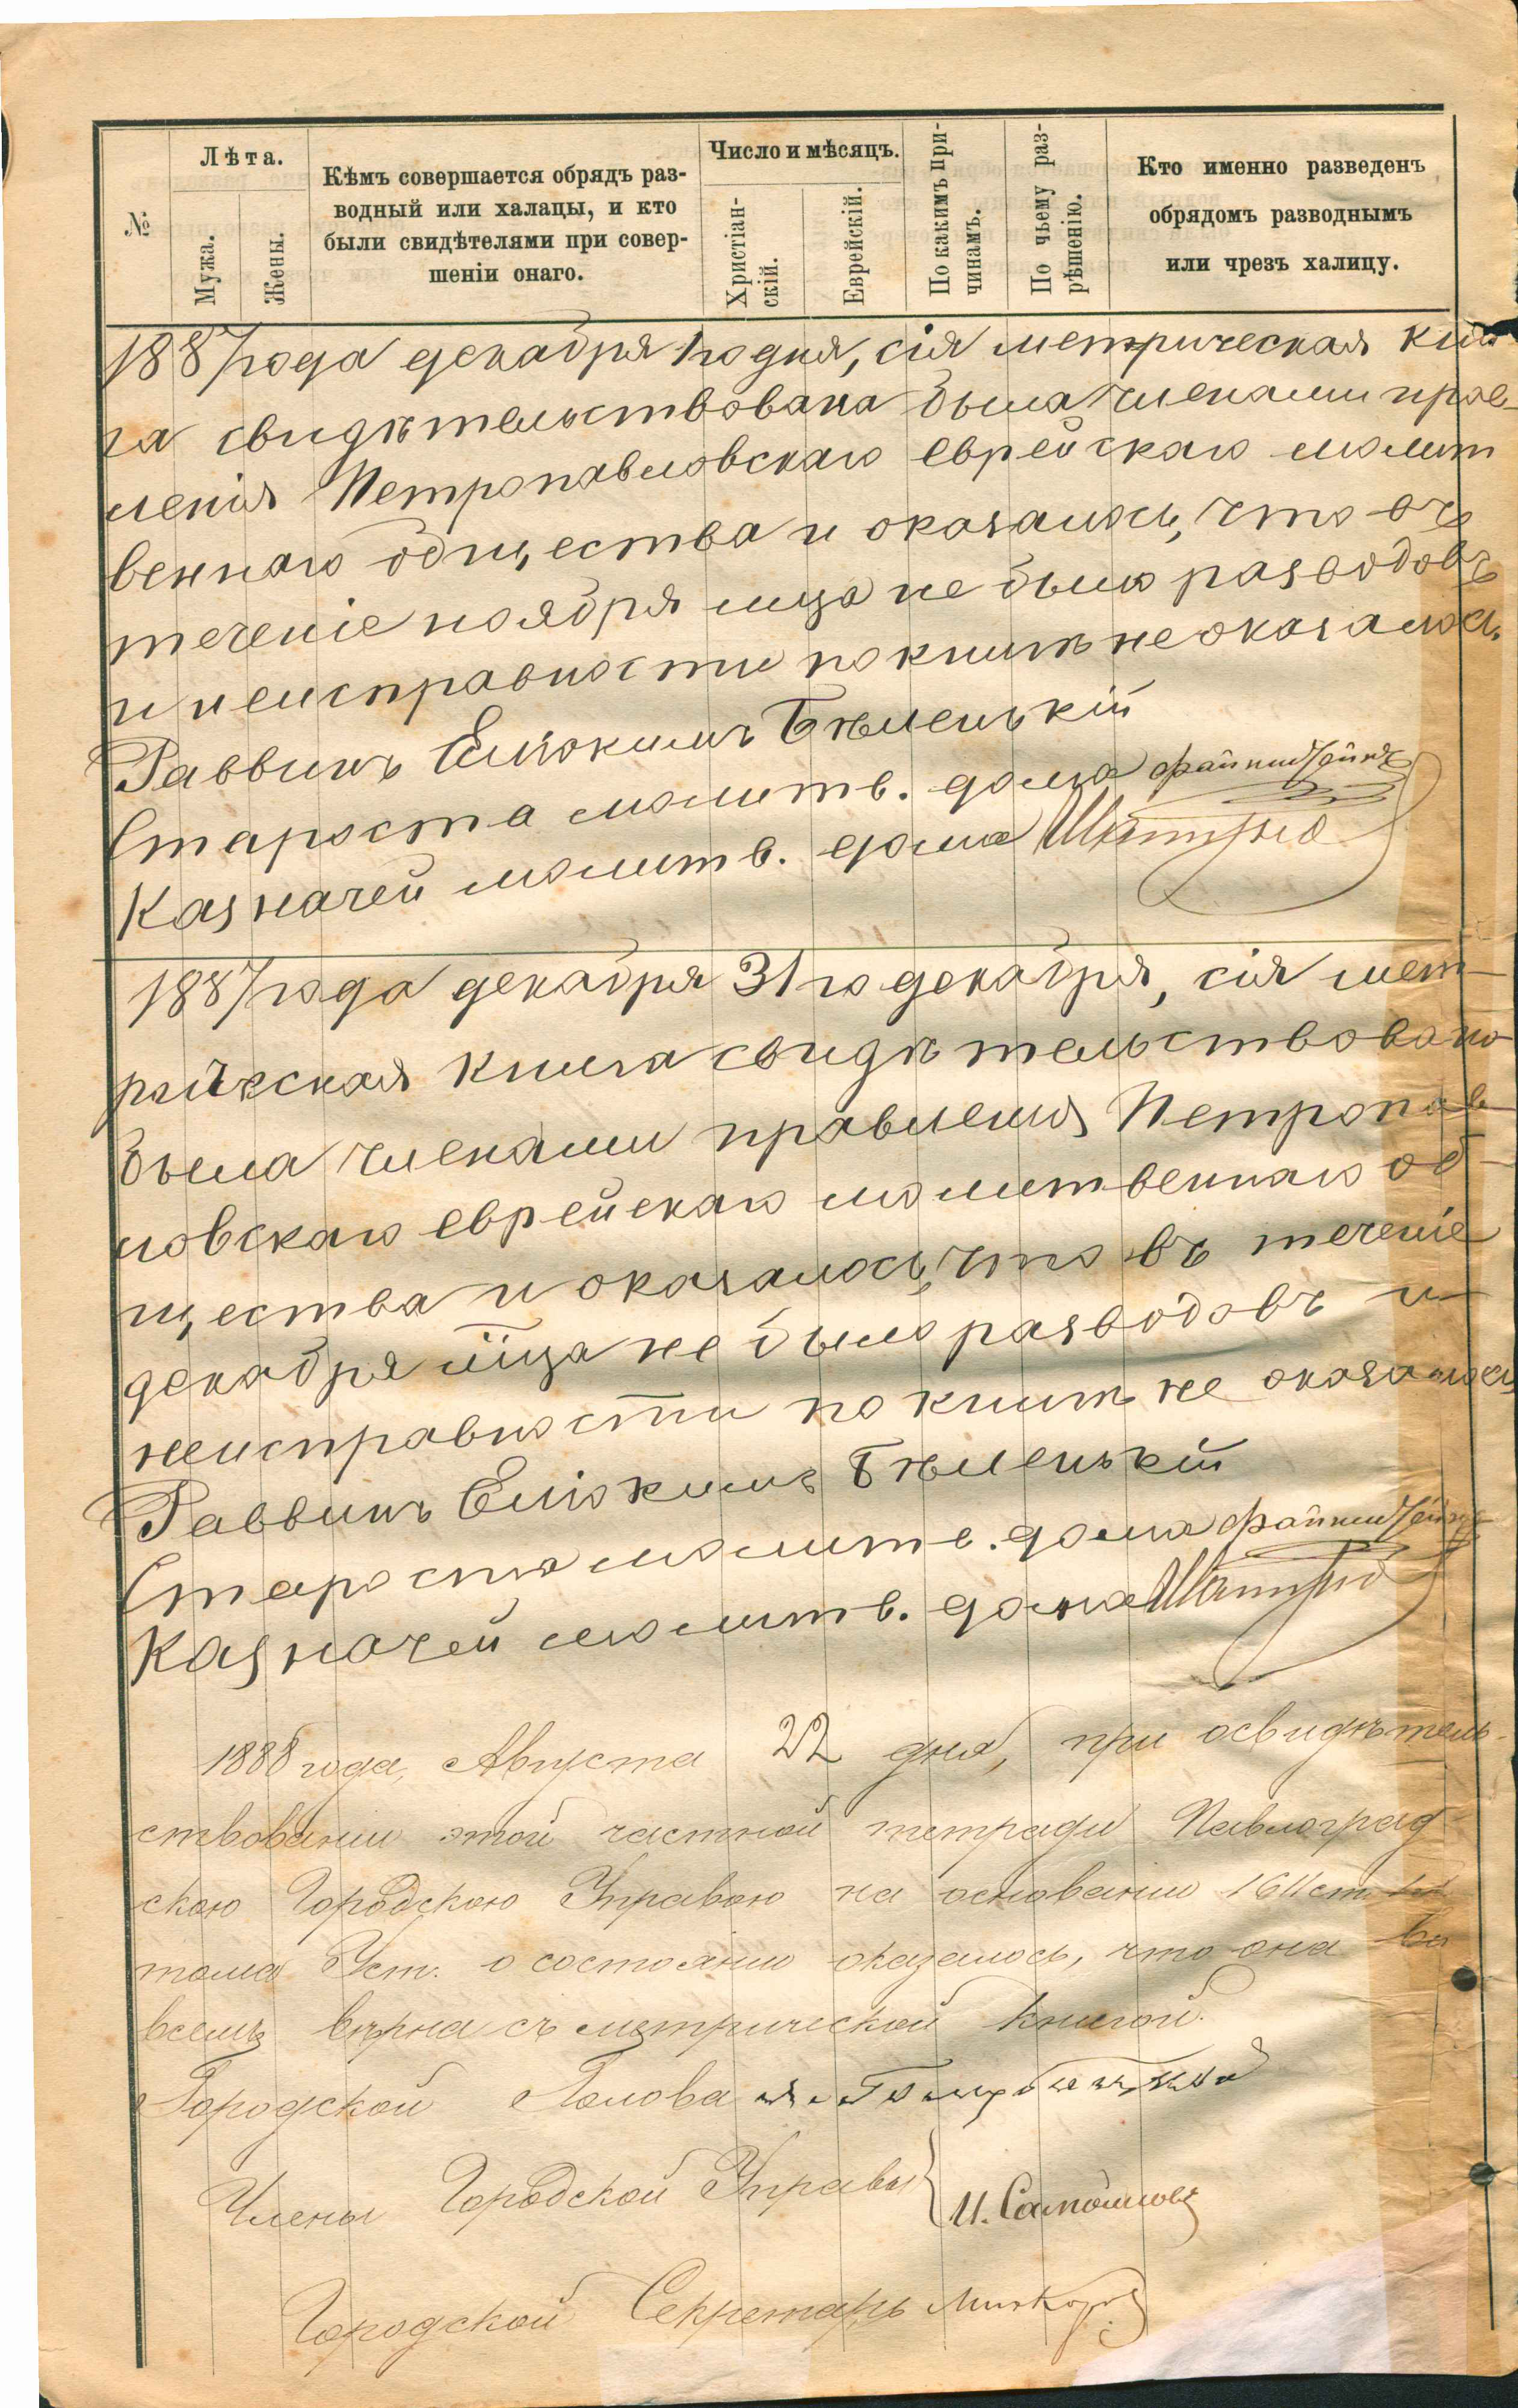 №
Лѣта.
Мужа.
Жены.
Кѣмъ совершается обрядъ раз-
водный или халацы, и кто
были свидѣтелями при совер-
шеніи онаго.
Число и мѣсяцъ.
Христіан-
скій.
Еврейскій.
По какимъ при-
чинамъ.
По чьему раз-
рѣшенію.
Кто именно разведенъ
обрядомъ разводнымъ
или чрезъ халицу.
1887 года декабря 1го дня, сія метрическая кни
га свидѣтельствована была членами прав-
ленія Петропавловскаго еврейскаго молит
веннаго общества и оказалось, что въ
теченіе ноября мца не было разводовъ
и неисправности по книгѣ не оказалось.
Раввинъ Еліокимъ Бѣленькій
Староста молитв. дома
Казначей молитв. дома
1887 года декабря 31го декабря, сія мет-
рическая книга свидѣтельствована
была членами правленія Петропав-
ловскаго еврейскаго молитвеннаго об-
щества и оказалось, что въ теченіе
декабря мца не было разводовъ и
неисправности по книгѣ не оказалось
Раввинъ Еліокимъ Бѣленькій
Староста молитв. дома
Казначей молитв. дома
1888 года, Августа 22 дня, при освидѣтель-
ствованіи этой частной тетради Павлоград
скою Городскою Управою на основаніи 1611 ст.
тома Уст. о состояніи оказалось, что она во
всемъ вѣрна съ метрической книгой.
Городской Голова
Члены Городской Управы И. Самойловъ
Городской Секретарь